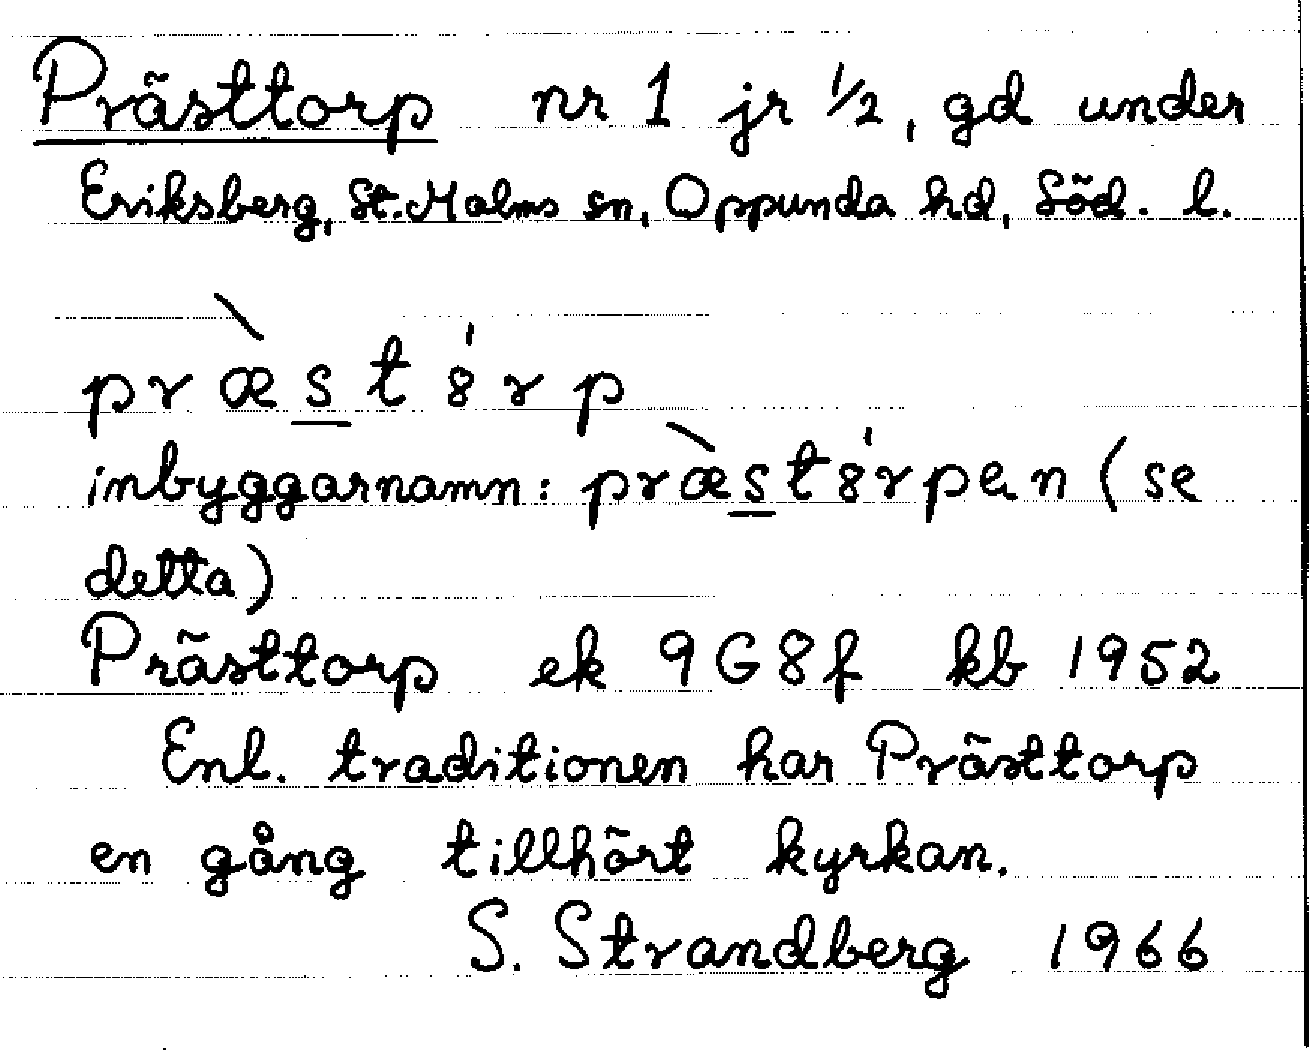 Prästtorp nr 1 jr 1/2, gd under
Eriksberg, St. Malms sn, Oppunda hd, Söd. l.
præ̀st8́rp
inbyggarnamn: præ̀st8́rpen (se
detta)
Prästtorp ek 9G8f kb 1952
Enl. traditionen har Prästtorp
en gång tillhört kyrkan.
S. Strandberg 1966